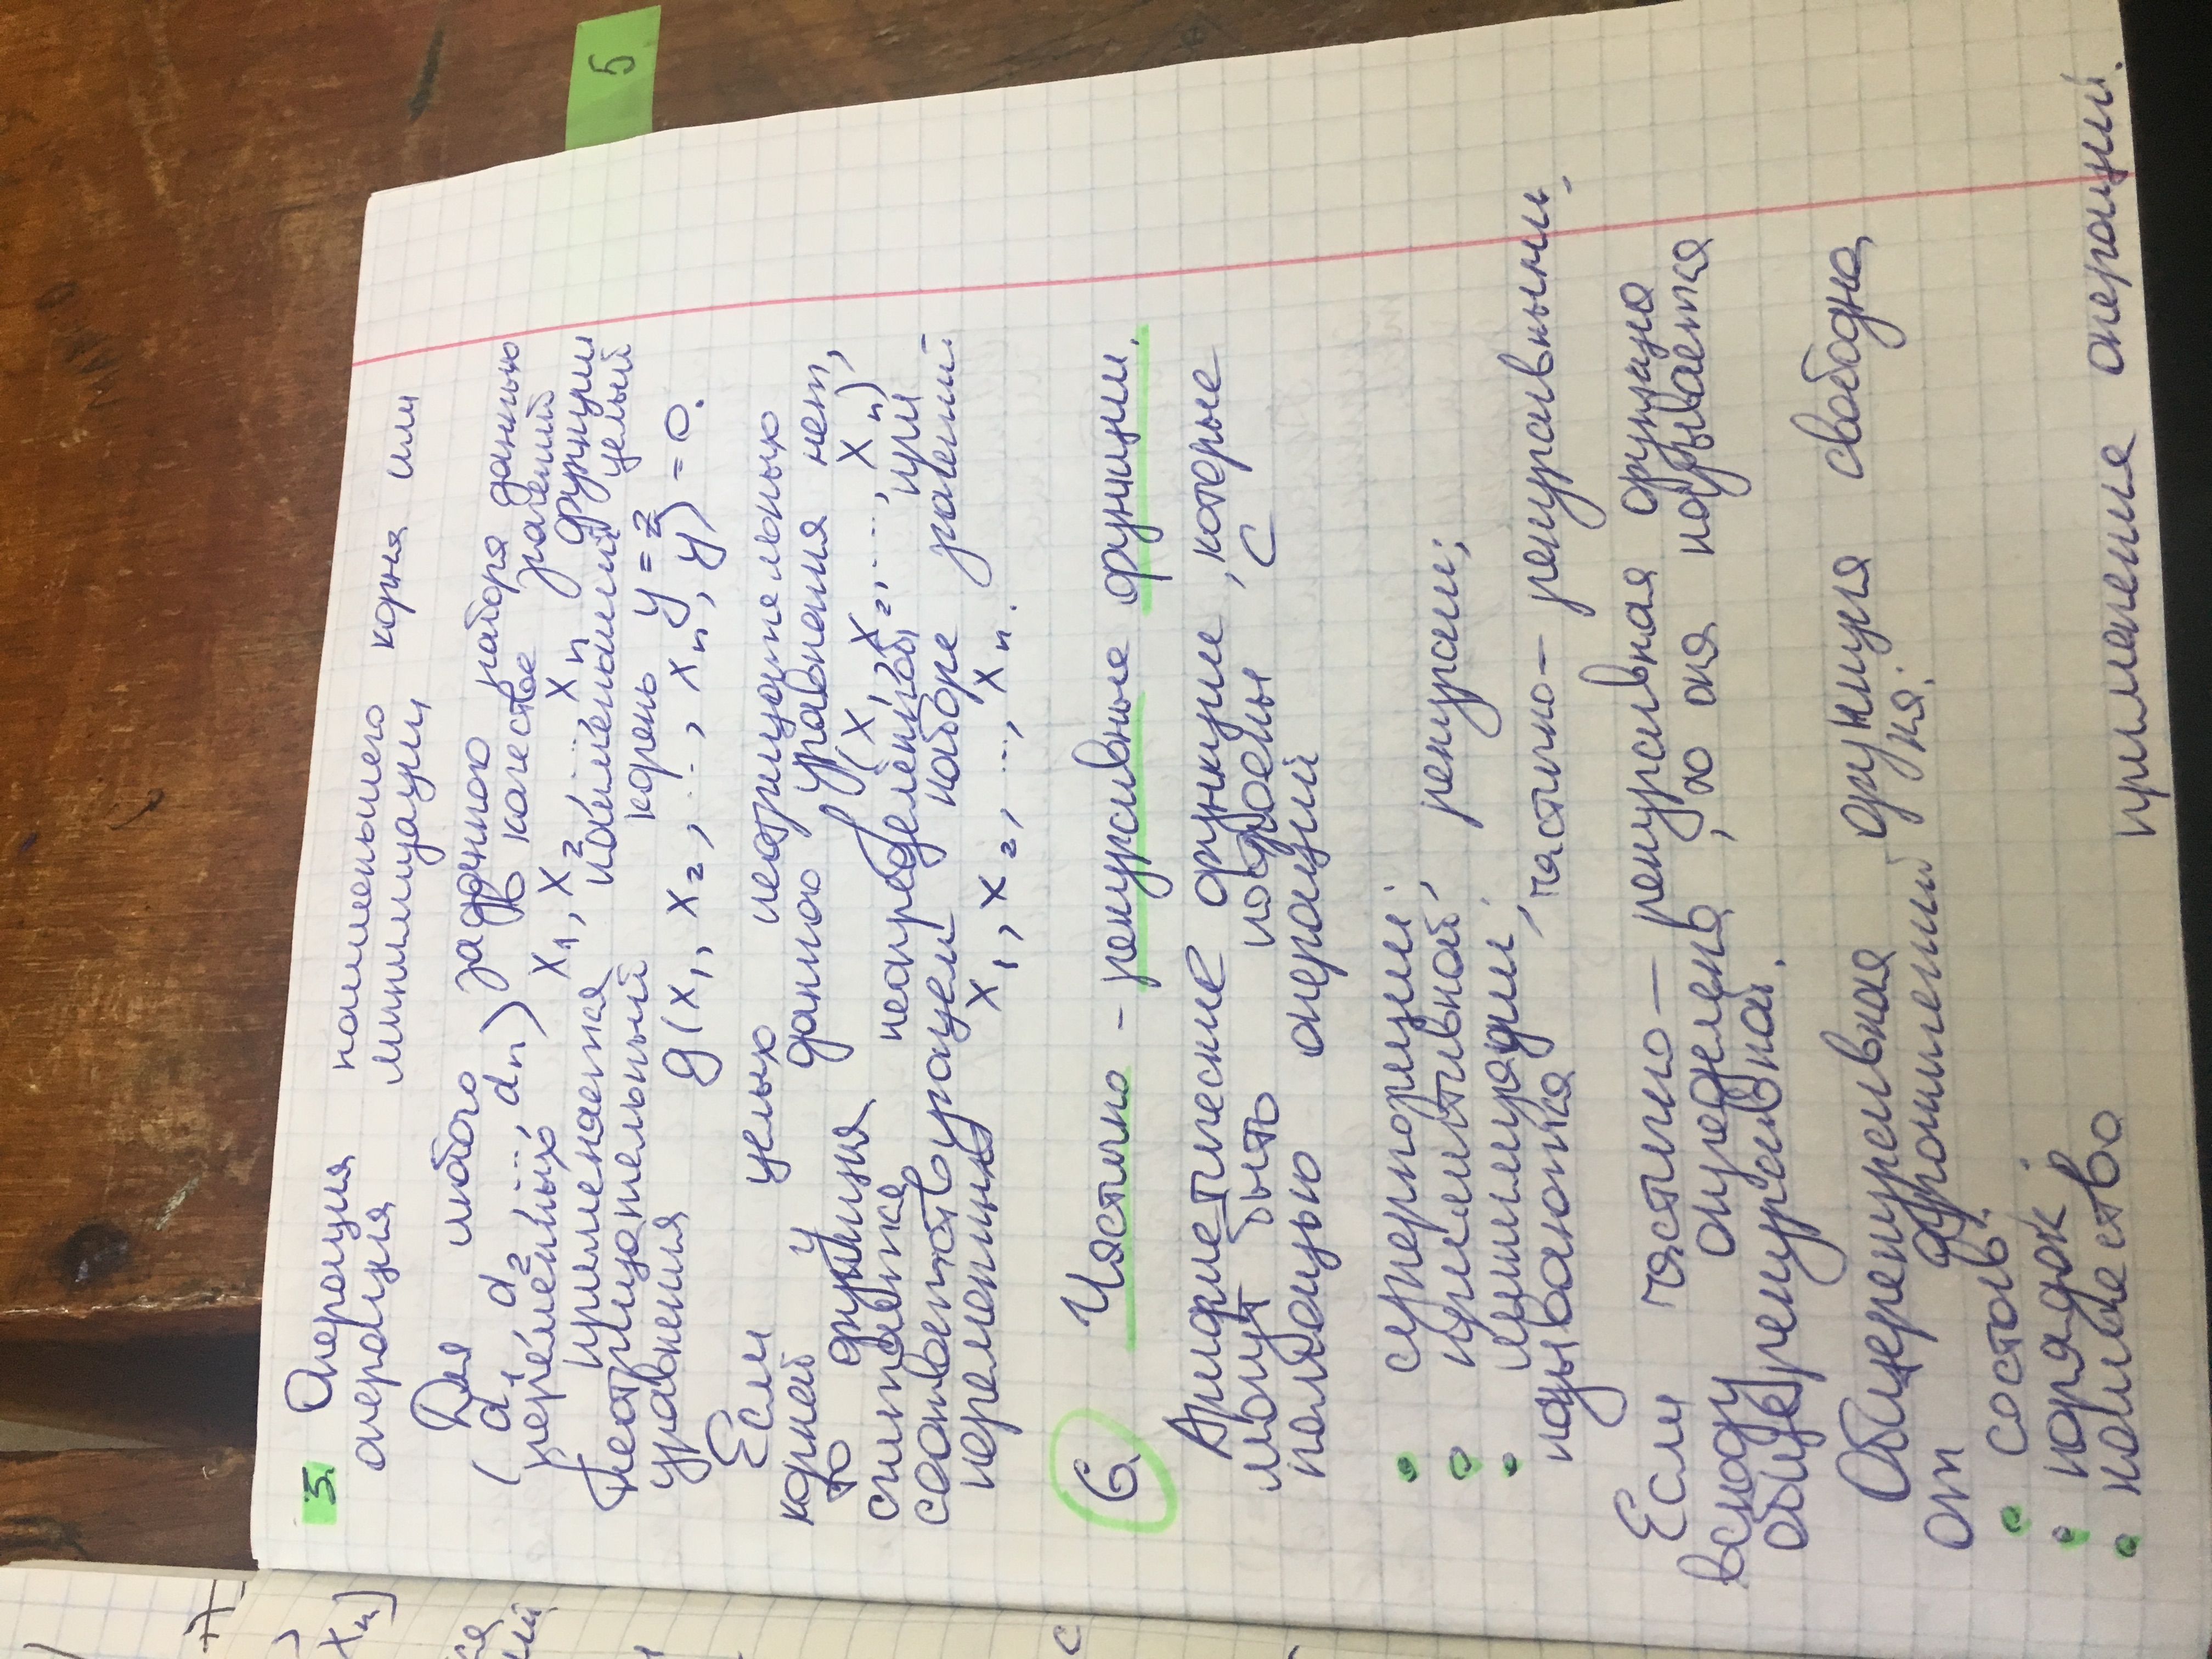 3. Операция наименьшего корня или
операция минимизации
Для любого заданного набора данных
(d₁, d₂, ..., dₙ) в качестве значений
переменных x₁, x₂, ..., xₙ функции
f применяется наименьший целый
неотрицательный корень y = z
уравнения g(x₁, x₂, ..., xₙ, y) = 0.
Если целых неотрицательных
корней у данного уравнения нет,
то функция f(x₁, x₂, ..., xₙ)
считается неопределённой при
соответствующем наборе значений
переменных x₁, x₂, ..., xₙ.
6. Частично – рекурсивные функции.
Арифметические функции, которые
могут быть построены с
помощью операций
• суперпозиции;
• примитивной рекурсии;
• минимизации;
называются частично – рекурсивными.
Если частично – рекурсивная функция
всюду определена, то она называется
общерекурсивной.
Общерекурсивная функция свободна
от ограничений на:
• состав;
• порядок;
• количество применения операций.
5
xₙ]
с